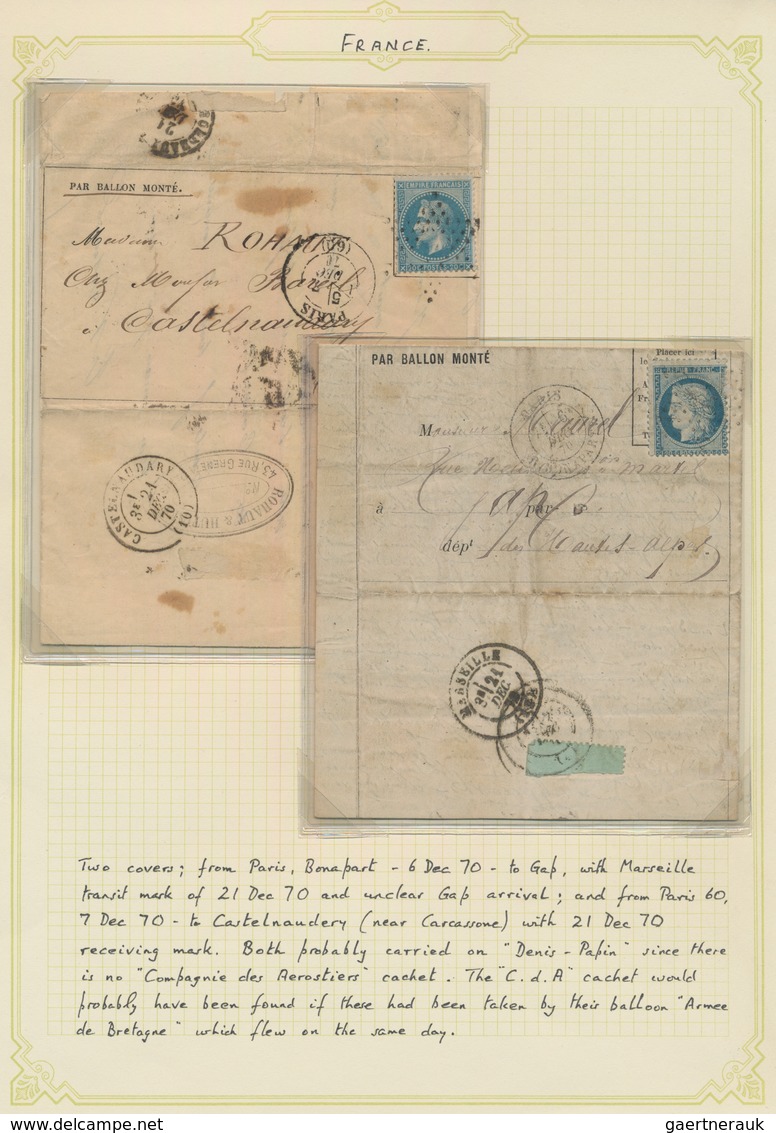 FRANCE.
BORDEAUX
21
PAR BALLON MONTÉ.
EMPIRE FRANCAIS
20C POSTES 20C
Madame ROHAUT
Chez Monsieur
à Castelnaudary
PARIS
5
7
DEC
70
(60)
CASTELNAUDARY
21
DEC
70
(10)
ROHAUT & HUT
43 RUE GRENE
PAR BALLON MONTÉ
Placer ici
REPUB FRANC
PARIS
Monsieur
Rue
à Gap par
dépt des Hautes-Alpes
MARSEILLE
21
DEC
Two covers; from Paris, Bonapart - 6 Dec 70 - to Gap, with Marseille
transit mark of 21 Dec 70 and unclear Gap arrival; and from Paris 60,
7 Dec 70 - to Castelnaudery (near Carcassone) with 21 Dec 70
receiving mark. Both probably carried on "Denis-Papin" since there
is no "Compagnie des Aerostiers" cachet. The "C.d.A" cachet would
probably have been found if these had been taken by their balloon "Armee
de Bretagne" which flew on the same day.
gaertnerauk